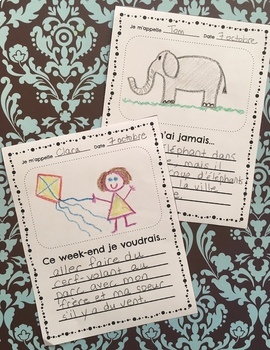 Je m'appelle Tom Date 7 octobre
n'ai jamais...
éléphant dans
mais il
d'éléphant
la ville.
Je m'appelle Clara Date 7 octobre
Ce week-end je voudrais...
aller faire du
cerf-volant au
parc avec mon
frère et ma soeur
s'il y a du vent.